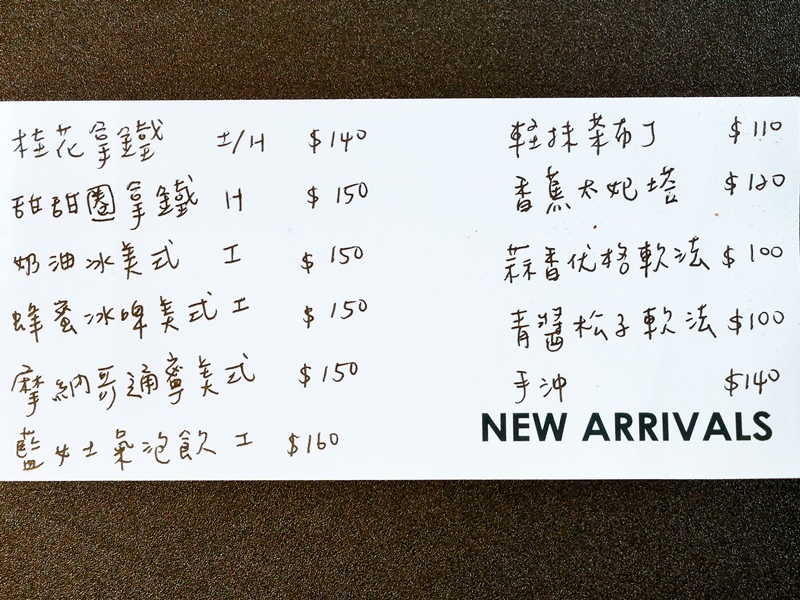 桂花拿鐵 I/H $140
甜甜圈拿鐵 H $150
奶油冰美式 I $150
蜂蜜冰啤美式 I $150
摩納哥通寧美式 $150
藍女士氣泡飲 I $160
輕抹茶布丁 $110
香蕉太妃塔 $120
蒜香优格軟法 $100
青醬松子軟法 $100
手沖 $140
NEW ARRIVALS